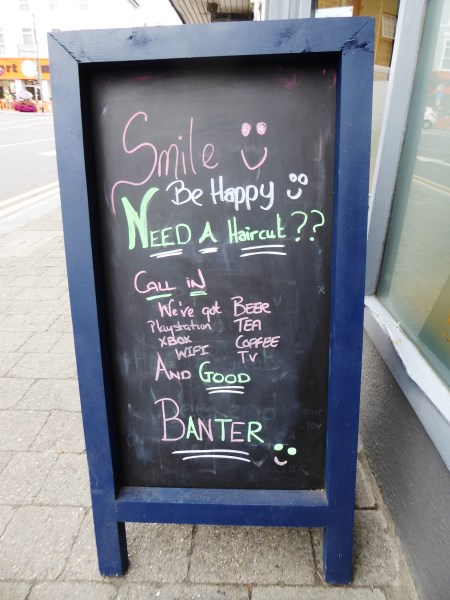 Smile
Be Happy
NEED A Haircut??
CALL iN
We've got BEER
Playstation TEA
XBOX COFFEE
WIFI TV
AND GOOD
BANTER